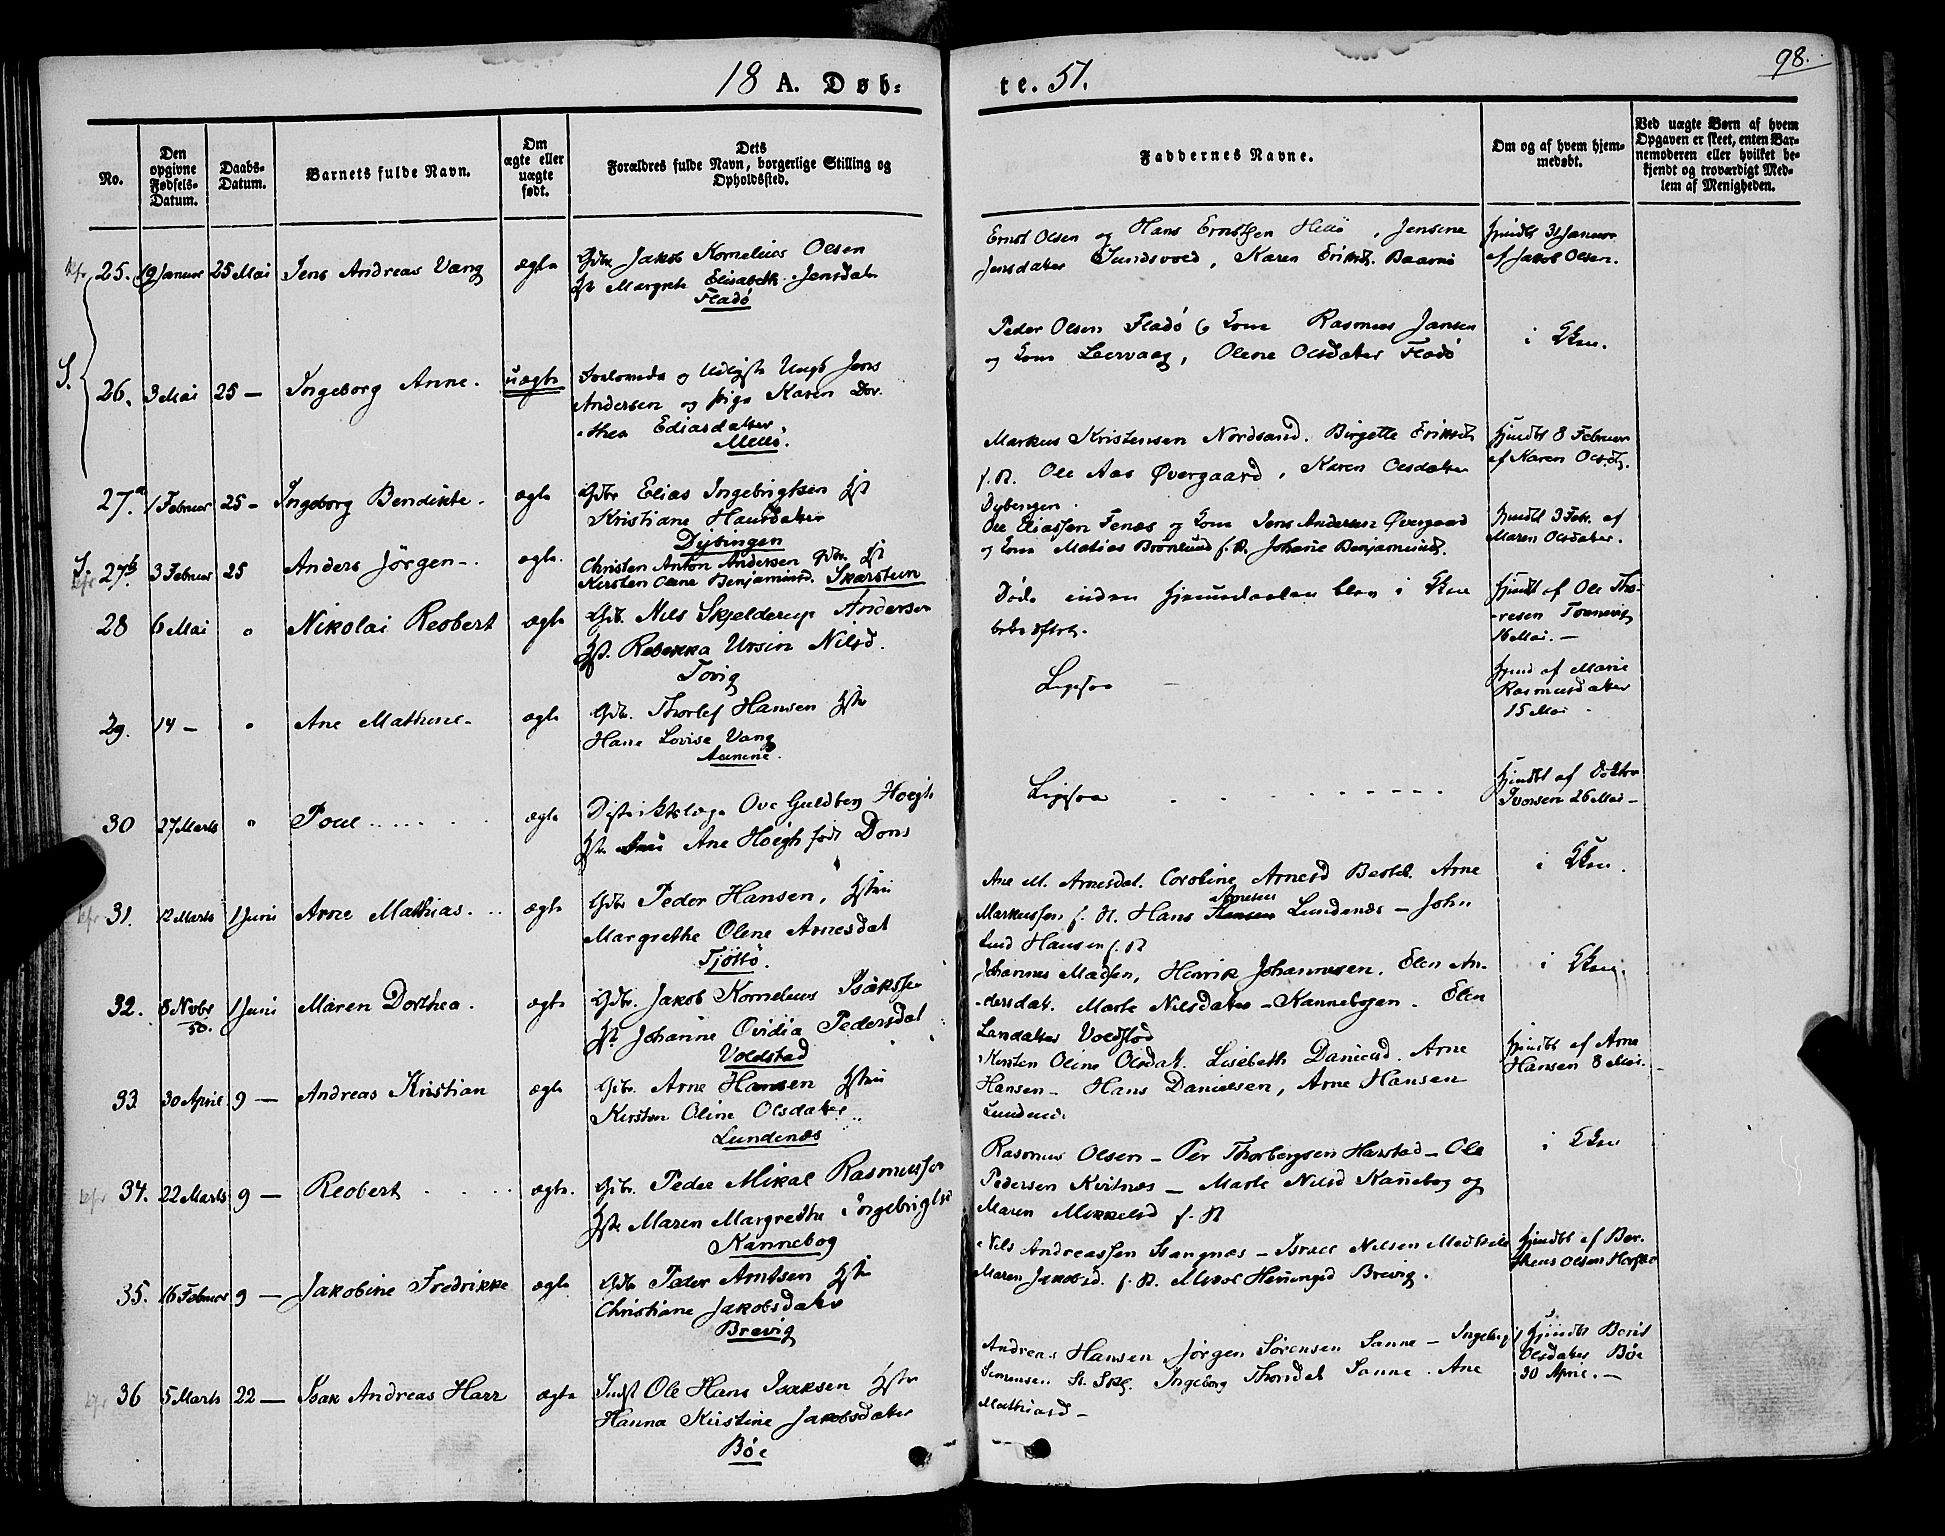 98.
18 A. Døb=
te. 51.
No.
Den opgivne Fødsels-Datum.
Daabs-Datum.
Barnets fulde Navn.
Om ægte eller uægte født.
Dets Forældres fulde Navn, borgerlige Stilling og Opholdssted.
Faddernes Navne.
Om og af hvem hjemmedøbt.
Ved uægte Børn af hvem Opgaven er skeet, enten Barnemoderen eller hvilket bekjendt og troværdigt Medlem af Menigheden.
25. 19 Januar 25 Mai Jens Andreas Vang ægte Gdbr Jakob Kornelius Olsen
Hst Margrete Elisabeth Jensdatr
Fladø
Ernst Olsen og Hans Ernstsen , Jensine
Jensdatter Sundsvold, Karen Eriksd.
hjmdbt 31 Januar
af Jakob Olsen.
26. 3 Mai 25 — Ingeborg Anne. uægte Ungk Jens
Andersen og pige Karen Dor-
thea Ediasdatter,
Melø.
Peder Olsen Fladø & Kone Rasmus Jansen
og Kone Leervaag, Olene Olsdatter Fladø
i Kken.
27a 1 Februar 25 — Ingeborg Bendikte. ægte Gdbr Elias Ingebrigtsen Hst
Kristiane Hansdatter
Dybingen
Markus Kristensen Nordsand. Birgette Eriksdt
f. St. Ole Aas Øvergaard, Karen Olsdatter
Dybingen.
hjmdbt 8 Februar
af Karen Olsdt.
27b 3 Februar 25 Anders Jörgen ægte. Christen Anton Andersen Gdbr. Hst
Kersten Oline Benjaminsd. Skarstein
Ole Eliassen Fenæs og Kone Jens Andersen Øvergaard
og Kone Matias Brønlund f. St. Johane Benjaminsdt.
hjmdbt 3 Febr. af
Maren Olsdatter.
28 6 Mai " Nikolai Reobert ægte Gdbr. Nils Skjelderup Andersen
Hst. Rebekka Ursin Nilsd.
Tovig
Døde inden hjemmedaaben blev i Kken
bekræftet.
hjmdbt af Ole Tho-
resen
16 Mai. —
29. 14 — " Ane Mathine ægte Gdbr. Thorlef Hansen Hstr
Hane Lovise Vang
Aunene
Ligesaa
hjmd af Marie
Rasmusdatter
15 Mai
30 27 Marts " Poul ægte Distriktslæge Ove Guldberg Høegh
Hst Ane Høegh født Dons
Ligesaa
hjmdbt af Doktor
Iversen 26 Mai —
31. 12 Marts 1 Juni Arne Mathias ægte Gdbr Peder Hansen, Hstru
Margrethe Olene Arnesdat
Tjøttø.
Ane M. Arnesdat. Caroline Arnesd Arne
Markussen f. St. Hans Arnesen Lundenæs — John
Lind Hansen f. St
i Kken.
32. 8 Novbr 50. 1 Juni Maren Dorthea. ægte Gdbr. Jakob Kornelius Isaksen
Hst Johanne Ovidia Pedersdat
Voldstad
Johannes Madsen, Henrik Johannesen. Elen An-
dersdat. Marte Nilsdatter — Kannebogen. Elen
Larsdatter Voldstad
i Kken.
33. 30 April 9 — Andreas Kristian ægte Gdbr. Arne Hansen Hstru
Kersten Oline Olsdatter
Lundenæs
Kersten Oline Olsdat. Lisebeth Danielsd. Arne
Hansen — Hans Danielsen, Arne Hansen
Lundenæs
hjmdbt af Arne
Hansen 8 Mai.
34. 22 Marts 9 — Reobert ægte. Gdbr. Peder Mikal Rasmussen
Hst. Maren Margrethe Ingebrigtsd
Kannebog
Rasmus Olsen — Per Thorbergsen Harstad — Ole
Pedersen Kvitnæs — Marte Nilsd Kannebog og
Maren Mikkelsd f. St
i Kken
35. 16 Februar 9 — Jakobine Fredrikke ægte Gdbr Peder Arntsen Hstr
Christiane Jakobsdatter
Brevig
Nils Andreassen Stangnæs — Israel Nilsen
Maren Jakobsd. f. St. Henningsd Brevig.
hjmdbt af Ber-
thens Olsen
36 5 Marts 22 — Isak Andreas Harr ægte Indst Ole Hans Isaksen Hstr
Hanna Kirstine Jakobsdatter
Bøe
Andreas Hansen Jørgen Sørensen Sanne — Ingeborg
Simensen Ingeborg Thorsdat Sanne. Ane
Mathiasd —
hjmdbt Berit
Olsdatter Bøe
30 April. —